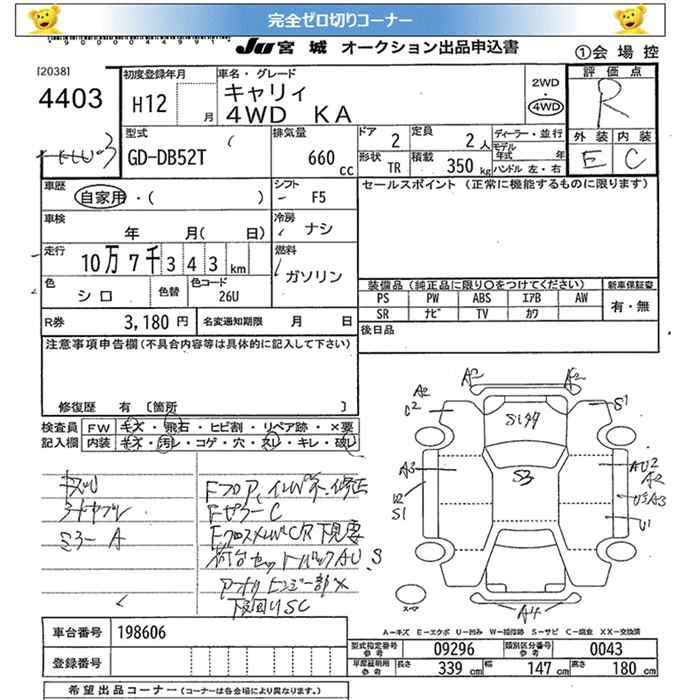 完全ゼロ切りコーナー
JU宮城 オークション出品申込書
①会場控
[2038]
4403
初度登録年月
H12
月
車名・グレード
キャリィ
4WD KA
2WD
・
4WD
評価点
R
外装 内装
E C
型式
GD-DB52T
排気量
660
cc
ドア
2
定員
2人
形状
TR
積載
350kg
ディーラー・並行
モデル年式 年
ハンドル 左・右
車歴
自家用・( )
シフト
F5
車検
年 月( 日)
冷房
ナシ
走行
10万7千343km
燃料
ガソリン
色
シロ
色替
色コード
26U
R券
3,180円
名変通知期限 月 日
セールスポイント (正常に機能するものに限ります)
装備品 (純正品に限り○をつけてください)
PS PW ABS エアB AW
SR ナビ TV カワ
新車保証書
有・無
後日品
注意事項申告欄(不具合内容等は具体的に記入して下さい)
修復歴 有 〔箇所 〕
検査員記入欄
FW キズ・飛石・ヒビ割・リペア跡・×要
内装 キズ・汚レ・コゲ・穴・スレ・キレ・破レ
ミラーA
FピラーC
下回りSC
A2 A2
S1
A3
S1
S3
A2
U1
A4
スーマ
A-キズ E-エクボ U-凹み W-補修跡 S-サビ C-腐食 XX-交換済
車台番号 198606
登録番号
型式指定番号 参考 09296
類別区分番号 参考 0043
車庫証明用 参考
長さ 339cm
幅 147cm
高さ 180cm
希望出品コーナー (コーナーは各会場により異なります。)